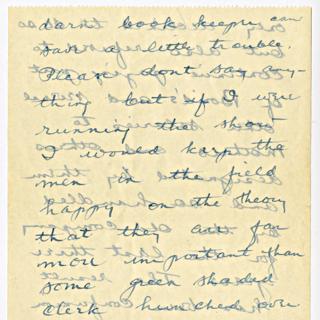 bank book keeper can
save a little trouble.
Please don't say any-
thing but if I were
running the show
I would keep the
men in the field
happy on the theory
that they are far
more important than
some green shaded
clerk hunched over